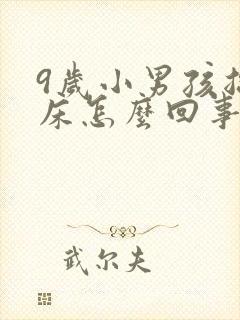 9歲小男孩
床怎麼回事
武尔夫